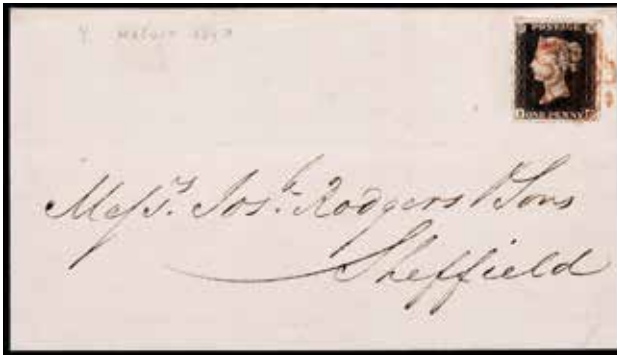 POSTAGE
ONE PENNY
Mess.rs Jos.h Rodgers & Sons
Sheffield